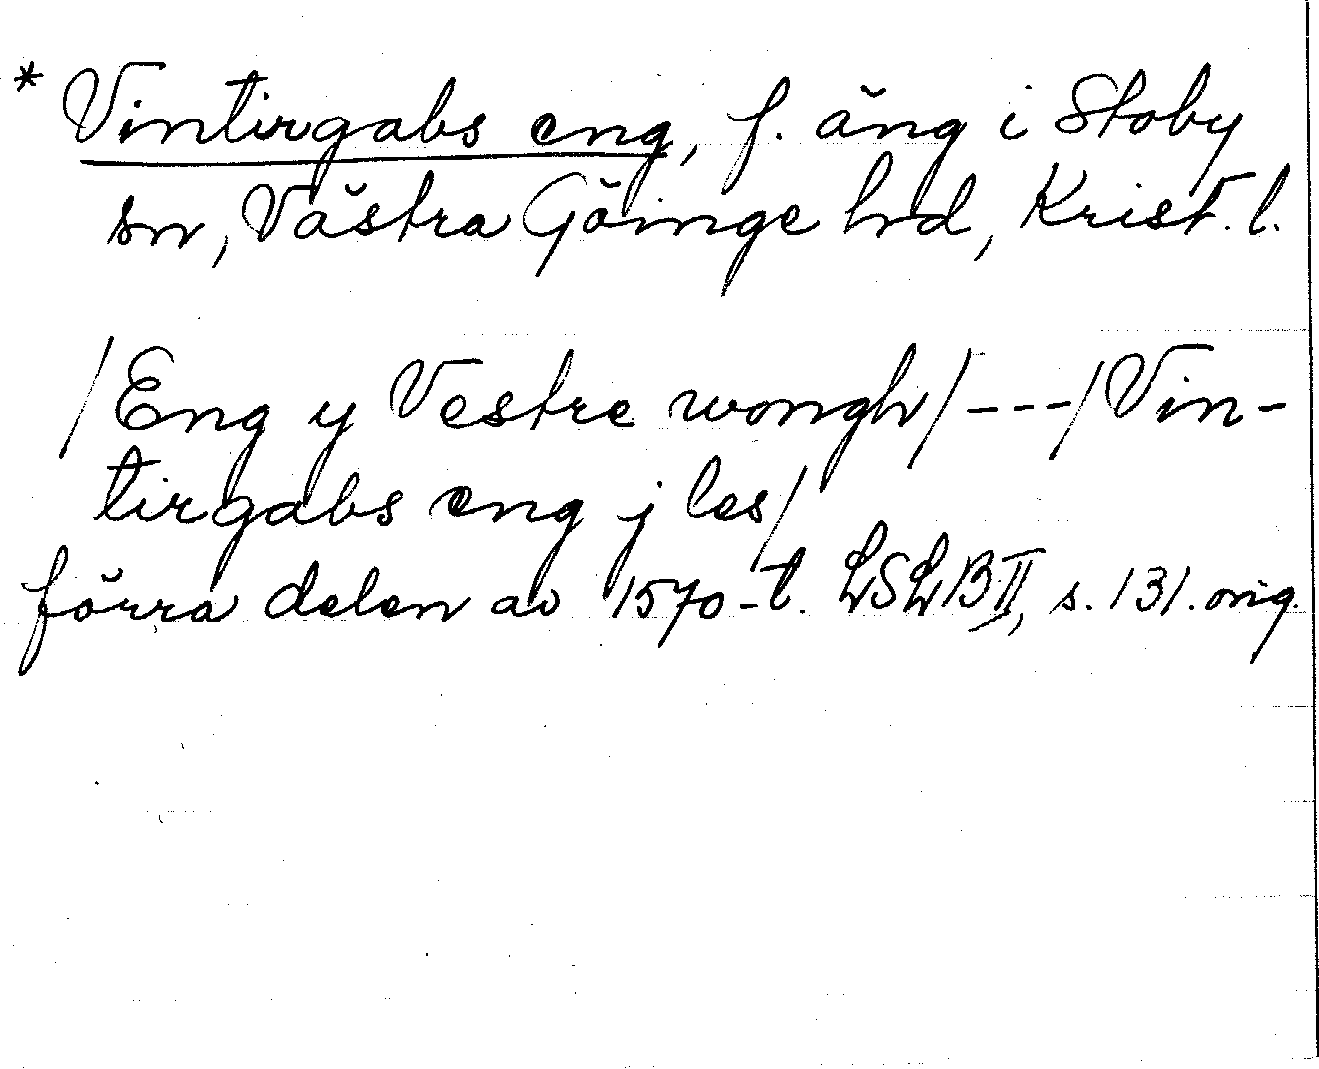 * Vintirgabs eng, f. äng i Stoby
sn, Västra Göinge hd, Krist. l.
/Eng y Vestre wongh/---/Vin-
tirgabs eng j les/
förra delen av 1570-t. LSLB II, s. 131. orig.